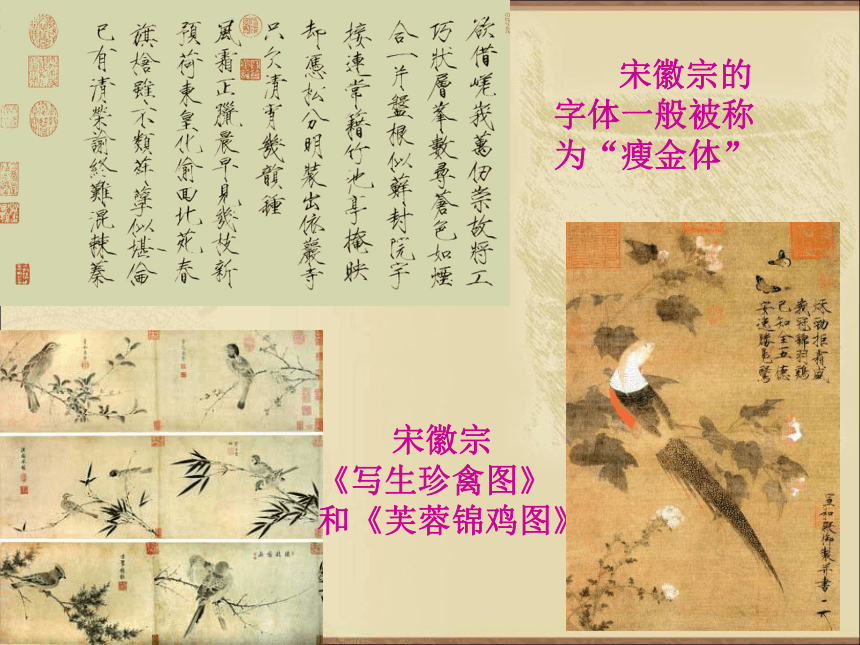 欲借嵯峨萬仞崇故將工
巧狀層峯數尋蒼色如煙
合一片盤根似蘚封院宇
接連常籍竹池亭掩映
却憑松分明裝出依巖寺
只欠清宵幾韻種
風霜正臘晨早見幾枝新
預荷東皇化偷回北苑春
旗槍雖不類荈孽似堪倫
已有清榮諭終難混棘蓁
宋徽宗的
字体一般被称
为“瘦金体”
秋勁拒霜盛
峩冠錦羽鷄
已知全五德
安逸勝鳧鷖
宣和殿御製并書
宋徽宗
《写生珍禽图》
和《芙蓉锦鸡图》